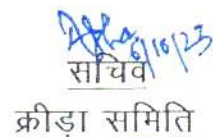 6/10/23
सचिव
क्रीड़ा समिति